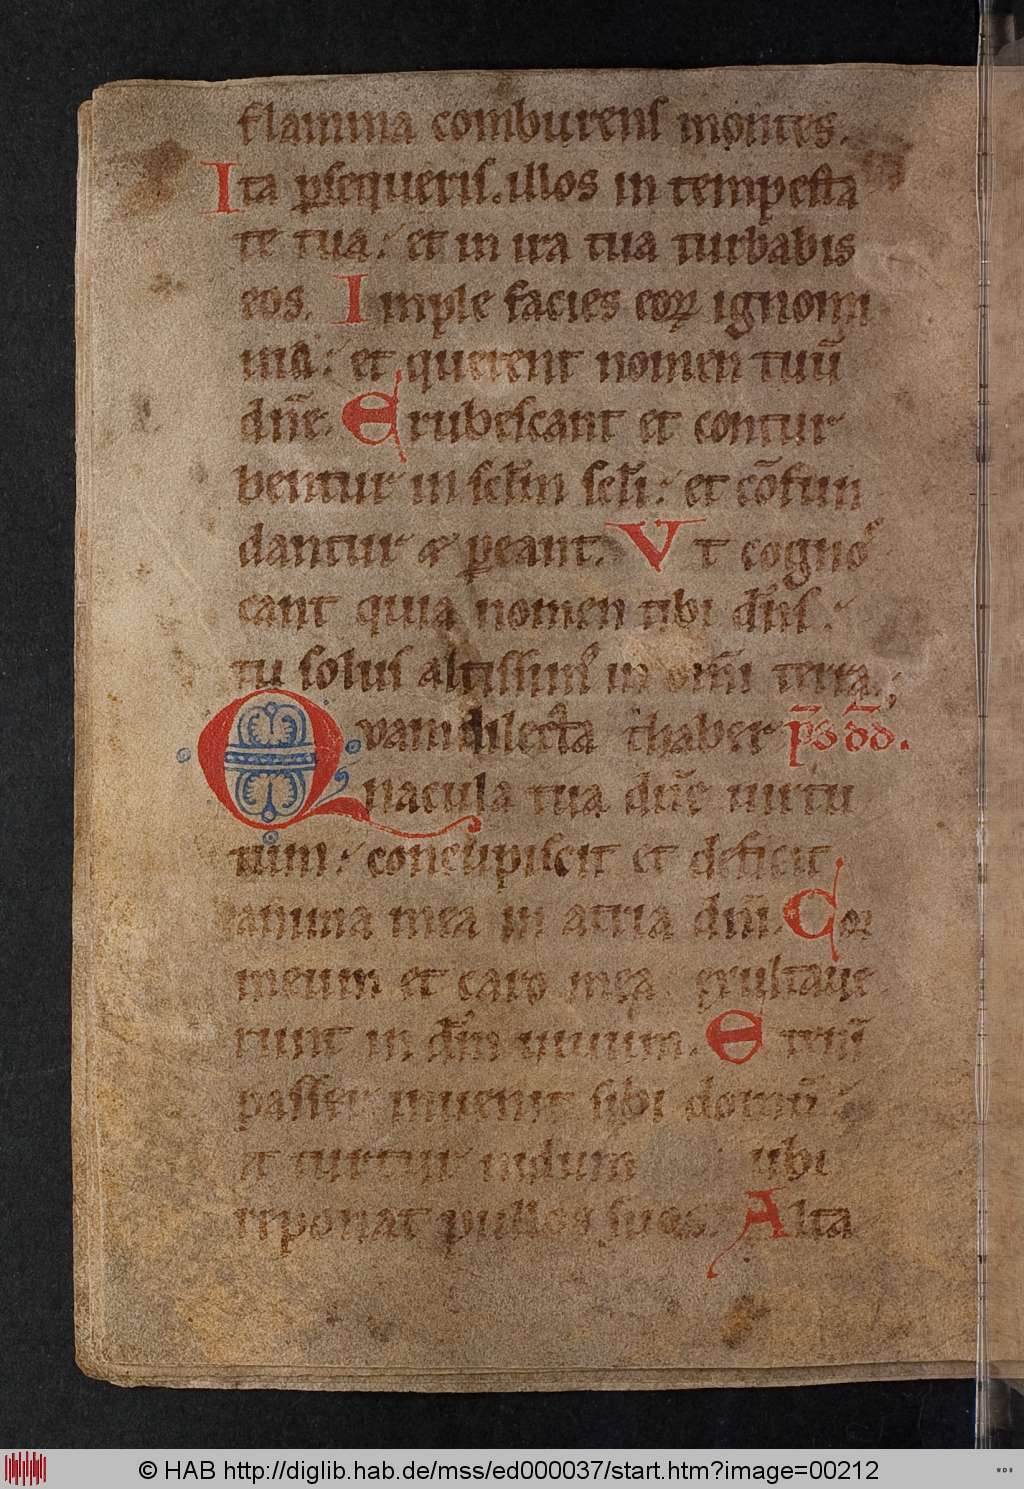 flamma comburens montes.
Ita ꝑsequeris.illos in tempesta
te tua: et in ira tua turbabis
eos. Imple facies eoꝝ ignomi
nia: et querent nomen tuū
dn̄e. Erubescant et contur
bentur in sc̄lm sc̄li: et cōfun
dantur & ꝑeant. Vt cogno
cant quia nomen tibi dn̄s:
tu solus altissimꝰ in om̄i terra.;
Quam dilecta thaber p̄s dd.
nacula tua dn̄e uirtu
tum: concupiscit et deficit
anima mea in atria dn̄i. Coꝛ
meum et caro mea exultaue
runt in dm̄ uiuum. Eteni
passer inuenit sibi domū:
et turtur nidum ubi
reponat pullos suos. Alta
© HAB http://diglib.hab.de/mss/ed000037/start.htm?image=00212